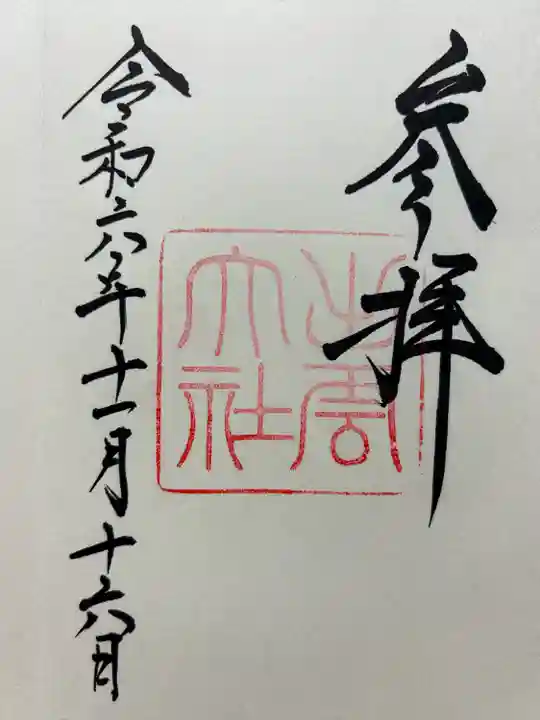 参拝
出雲
大社
令和六年十一月十六日